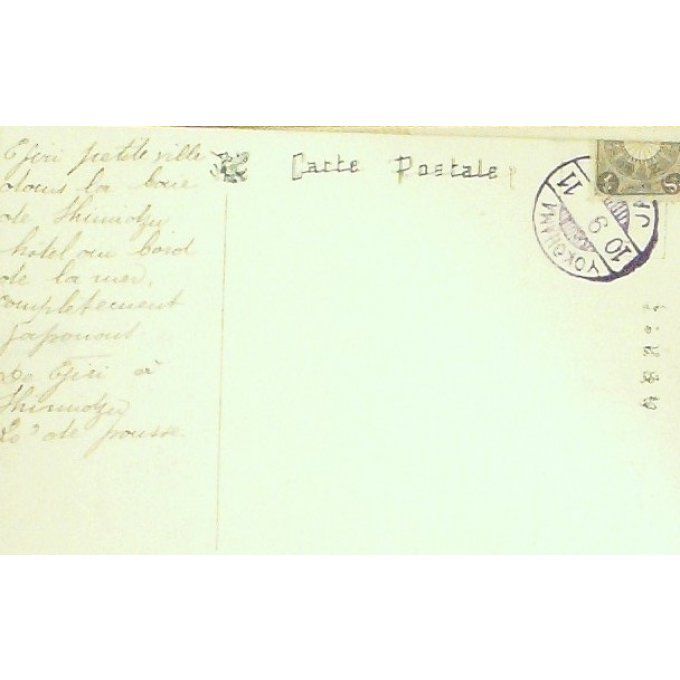 Ejiri petite ville
dans la baie
de Shimidzu
hotel au bord
de la mer,
completement
japonais
De Ejiri à
Shimidzu
20' de pousse.
Carte Postale
YOKOHAMA
10 9 11